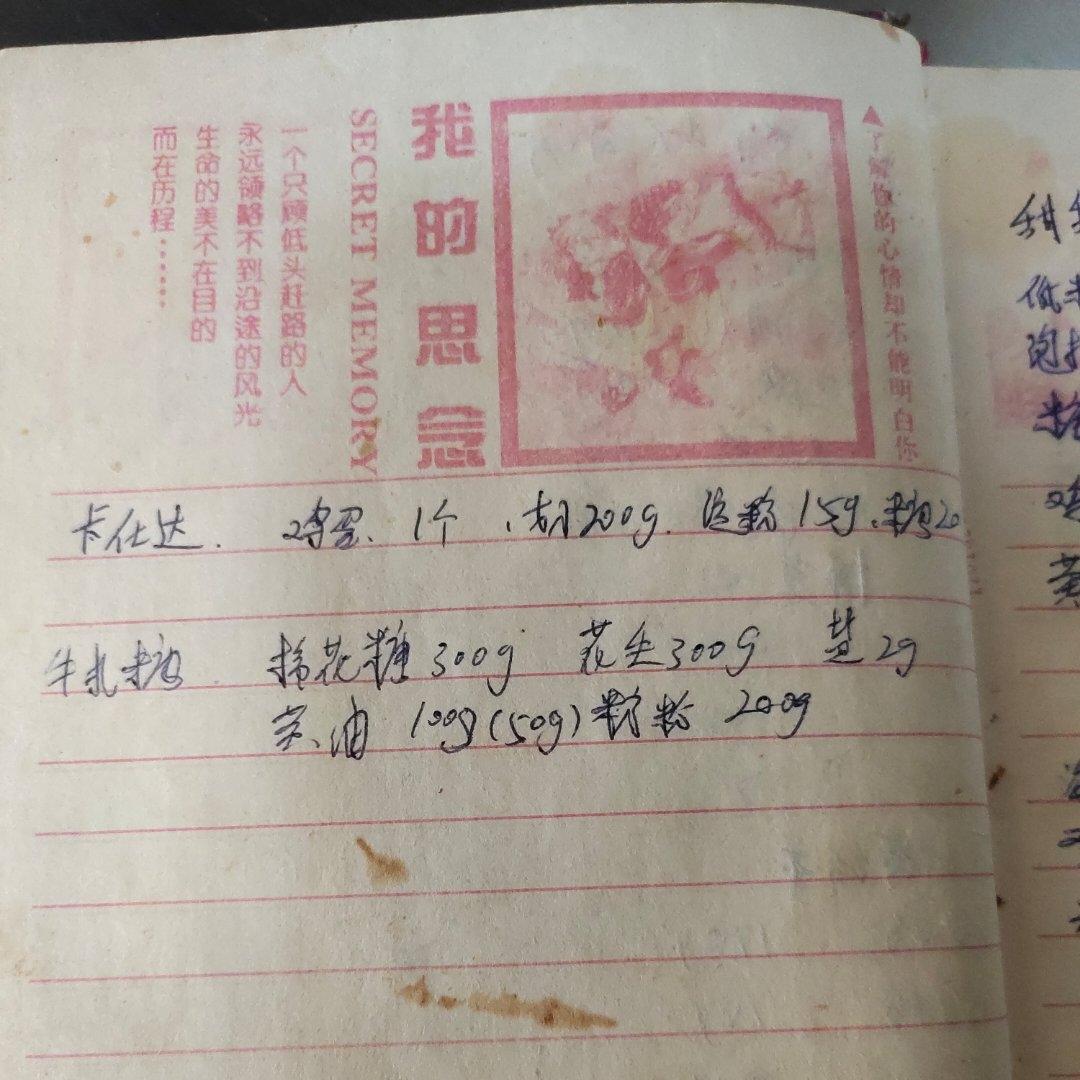 我的思念
SECRET MEMORY
一个只顾低头赶路的人
永远领略不到沿途的风光
生命的美不在目的
而在历程……
▲了解你的心情却不能明白你
卡仕达. 鸡蛋、1个 200g. 淀粉 15g、糖20
牛扎糖. 棉花糖 300g 花生300g 芝 2g
油 100g(50g) 粉 200g
甜
低
泡
糖
鸡
黄